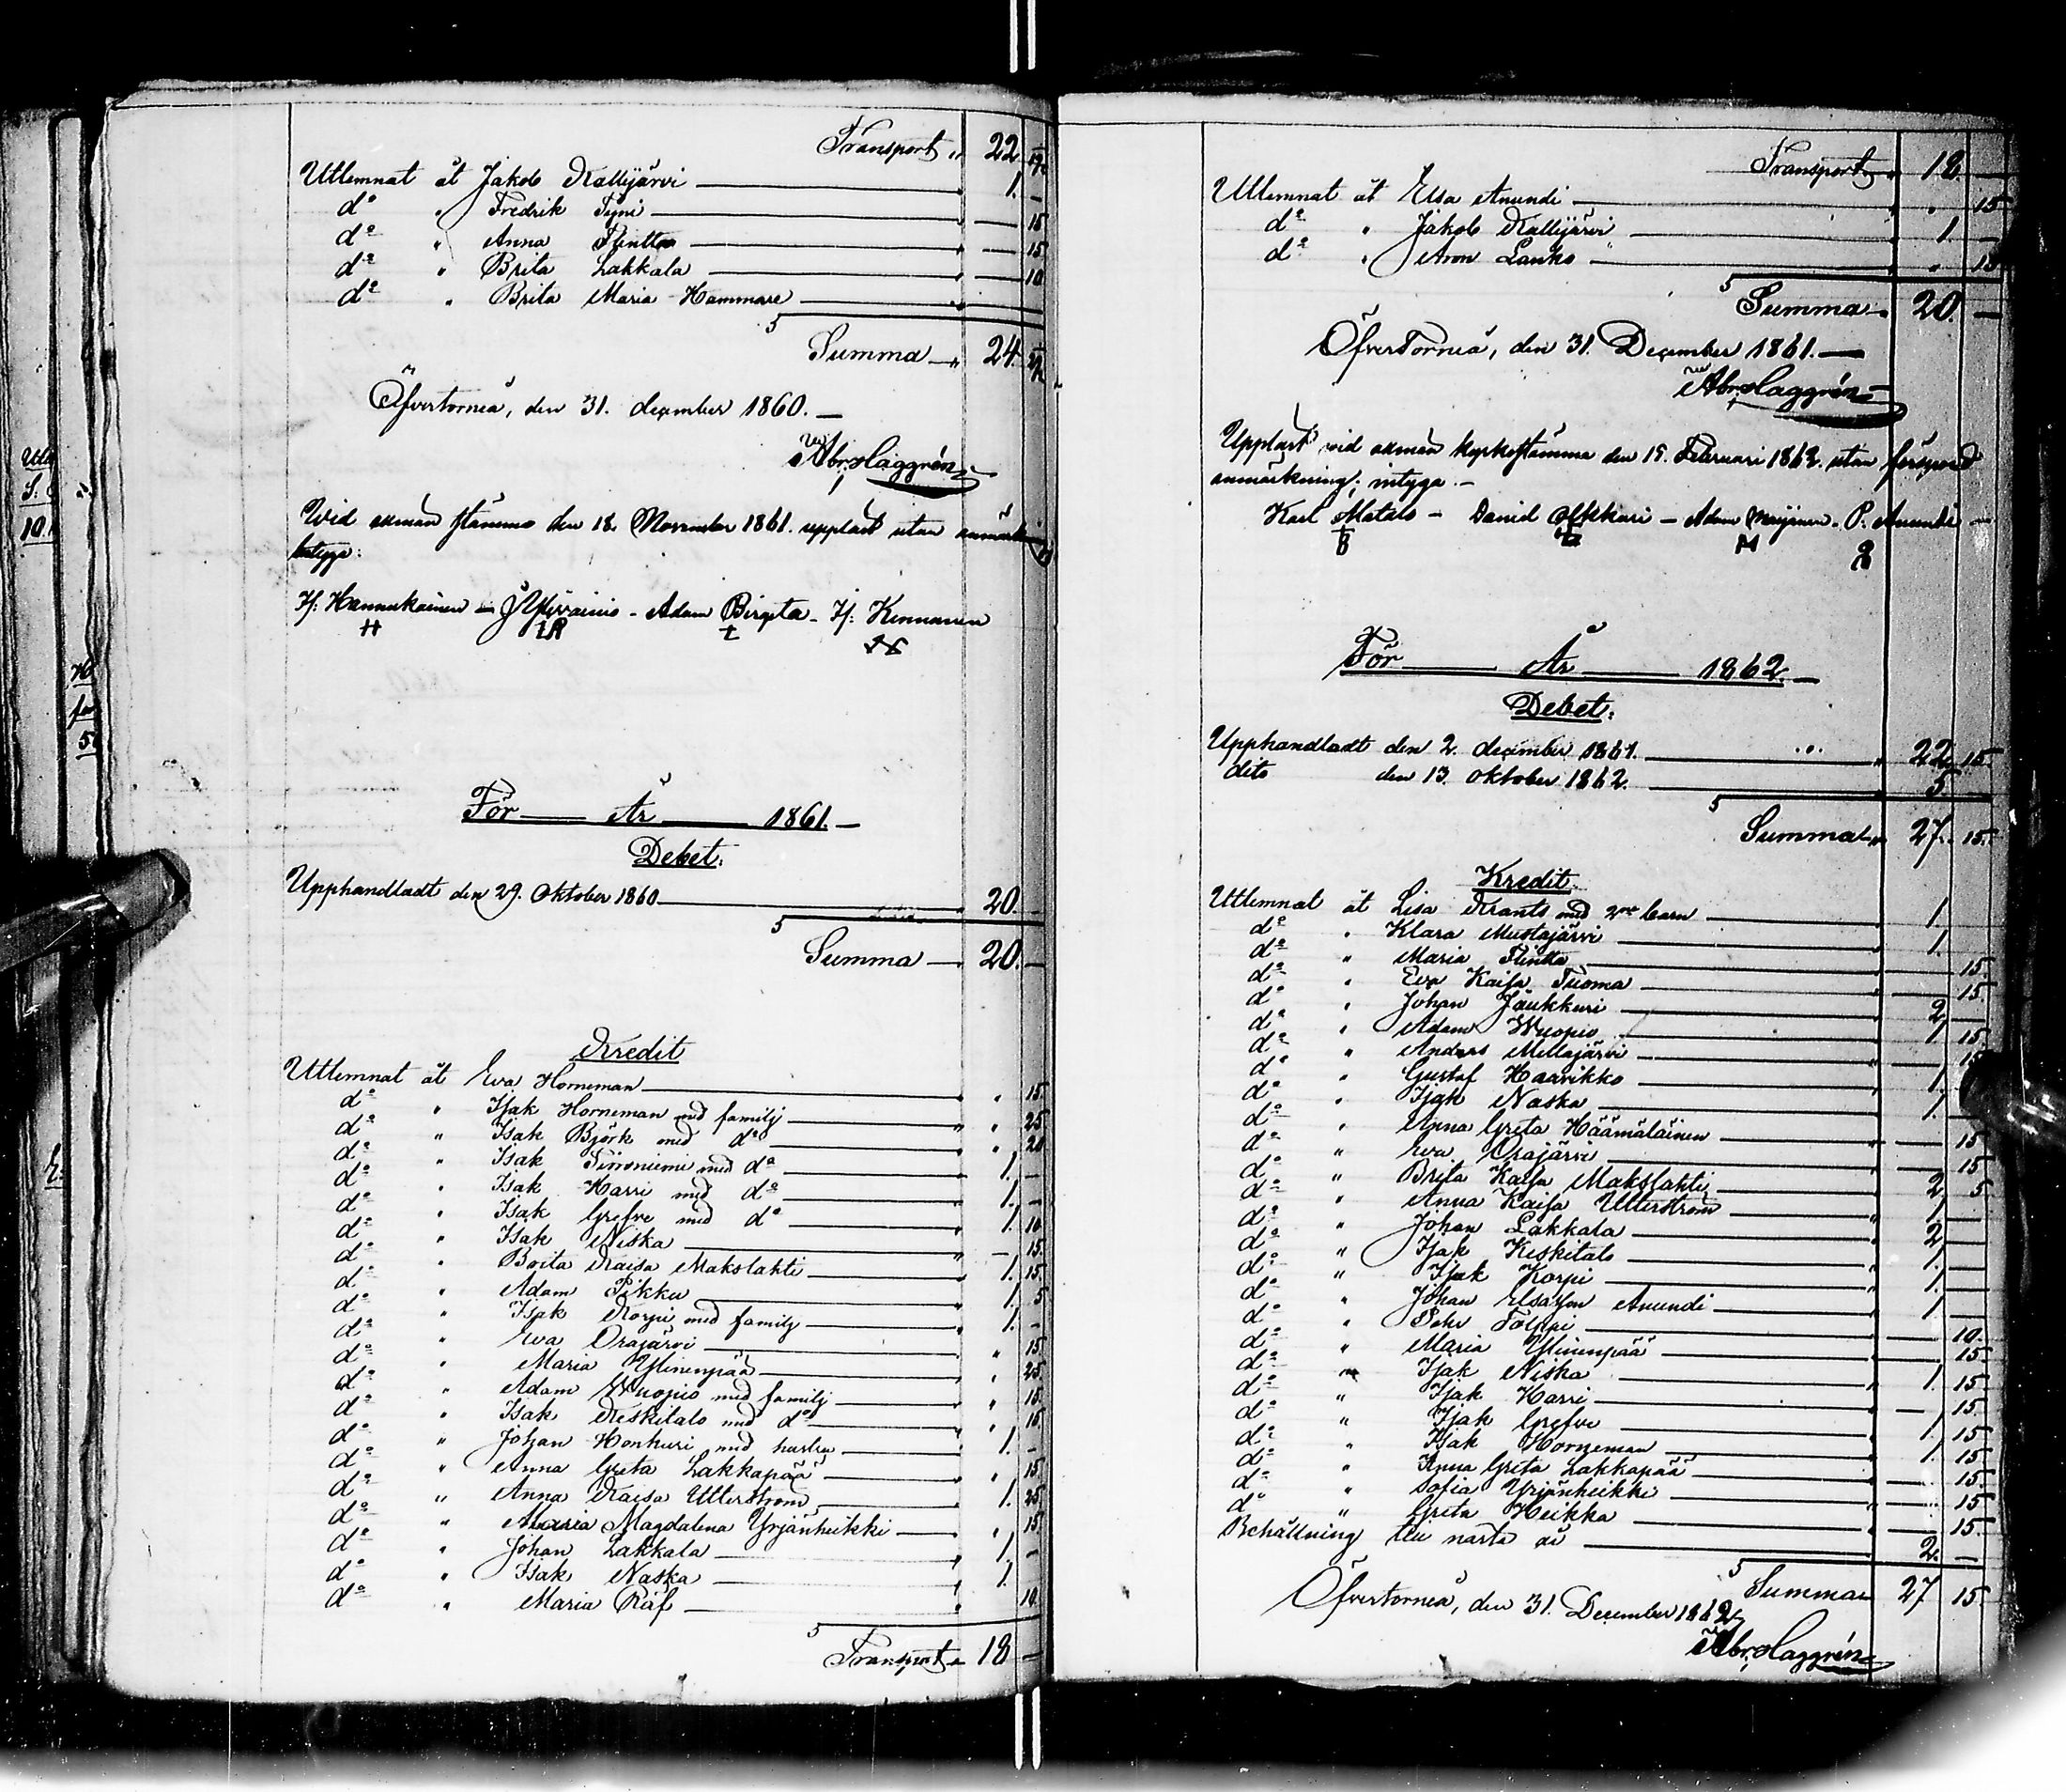 Transport „ 22
Utlemnat åt Jakob Kallijärvi 1. –
d:o „ Fredrik Tyni 15
d:o „ Anna Flintta 15
d:o „ Brita Lakkala 10
d:o „ Brita Maria Hammare
Summa „ 24.
Öfvertorneå, den 31. december 1860. –
Abr. Haggrén
Wid allmän stämma den 18. November 1861. uppläst utan
intyga:
If: Hannukainen – Adam Birgeta – If: Kinnanen
För År 1861. –
Debet:
Upphandladt den 29. Oktober 1860 20. –
Summa 20. –
Kredit
Utlemnat åt Eva Horneman „ 15
d:o „ Isak Horneman med familj „ 25
d:o „ Isak Björk med d:o „ 20
d:o „ Isak med d:o 1. –
d:o „ Isak Harri med d:o 1. –
d:o „ Isak Grefve med d:o 1. 10
d:o „ Isak Niska – 15.
d:o „ Brita Kaisa Makslahti 1. 15
d:o „ Adam Pikku 1. 5
d:o „ Isak Korpi med familj 1. –
d:o „ Eva Orajärvi „ 15
d:o „ Maria Ylinenpää „ 25.
d:o „ Adam Wuopio med familj „ 15
d:o „ Isak Keskitalo med d:o „ 15.
d:o „ Johan Honkuri med hustru 1. –
d:o „ Anna Greta Lakkapää „ 15
d:o „ Anna Kaisa Utterström 1. 25
d:o „ Maria Magdalena Yrjänheikki „ 15.
d:o „ Johan Lakkala 1 –
d:o „ Isak Naska 1.
d:o „ Maria Räf 10.
Transport 18 –
Transport 18. –
Utlemnat åt Elsa Anundi „ 15
d:o „ Jakob Kallijärvi 1. –
d:o „ Aron Lanko „ 15
Summa 20. –
Öfvertorneå, den 31. December 1861. –
Abr. Haggrén
Uppläst vid allmän kyrkostämma den 15. Februari 1863. utan försport
anmärkning; intyga. –
Karl Matalo – David – Adam – P. Anundi –
För År 1862. –
Debet:
Upphandladt den 2. december 1861. 22 15.
dito den 13. Oktober 1862. 5
Summa „ 27. 15.
Kredit.
Utlemnat åt Lisa Krants med 2ne barn 1.
d:o „ Klara Mustajärvi 1.
d:o „ Maria Flintta 15
d:o „ Eva Kaisa Tuoma 15
d:o „ Johan Jaukkuri 2 –
d:o „ Adam Wuopio 1 15
d:o „ Anders Mellajärvi 15
d:o „ Gustaf Haavikko 1.
d:o „ Isak Naska 1.
d:o „ Anna Greta Häämäläinen 15
d:o „ Eva Orajärvi 15
d:o „ Brita Kaisa Makslahti 2 5
d:o „ Anna Kaisa Utterström 1 –
d:o „ Johan Lakkala 2 –
d:o „ Isak Keskitalo 1. –
d:o „ Isak Korpi 1. –
d:o „ Johan Elsasson Anundi 1 –
d:o „ Pehr Tolppi 10.
d:o „ Maria Ylinenpää 15
d:o „ Isak Niska 1 15
d:o „ Isak Harri – 15.
d:o „ Isak Grefve 1 15
d:o „ Isak Horneman 1. 15
d:o „ Anna Greta Lakkapää 15
d:o „ Sofia Yrjänheikki 15
d:o „ Greta Heikka 15.
Behållning till nästa år 2. –
Summa 27 15
Öfvertorneå, den 31. December 1862
Abr. Haggrén